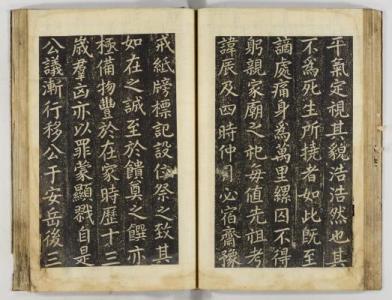 平氣定視其貌浩浩然也其
不為死生所撓者如此既至
謫處痛身為萬里縲囚不得
躬親家廟之祀每值先祖考
諱辰及四時仲月必宿齋豫
戒紙牓標記設位祭之致其
如在之誠至於饋奠之饌亦
極備物豐於在家時歷十三
歲羣凶亦以罪蒙顯戮自是
公議漸行移公于安岳後三